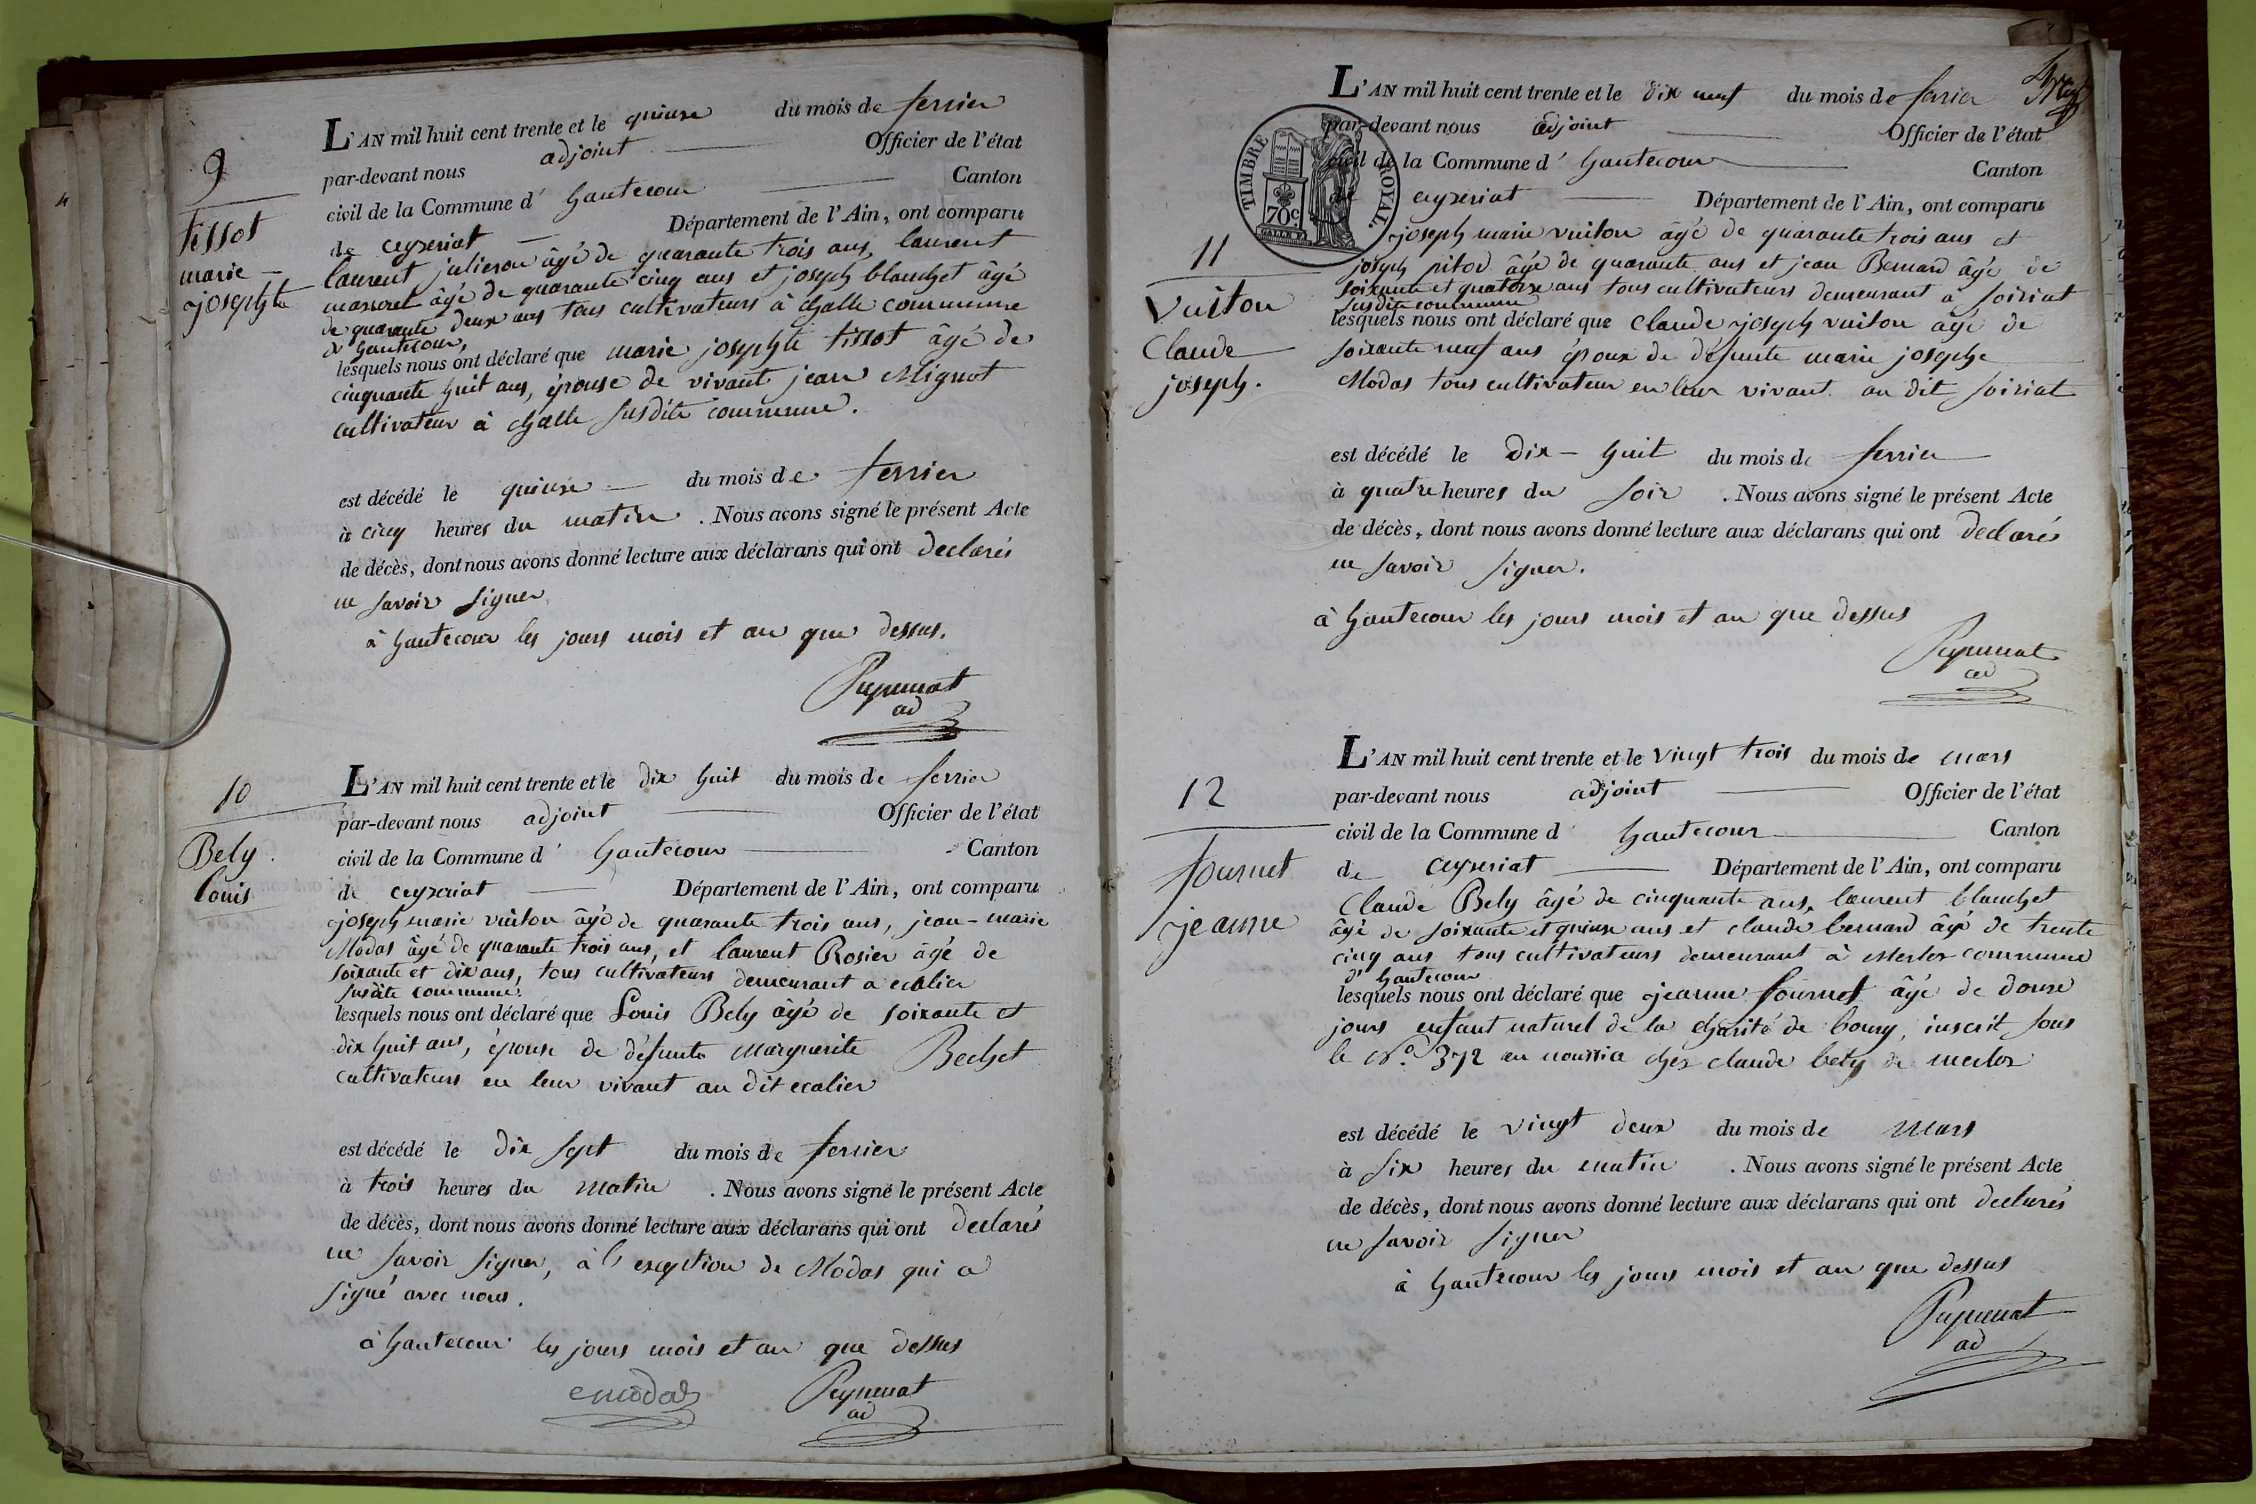 9
tissot
marie
josephte
L'AN mil huit cent trente et le quinze du mois de fevrier
par-devant nous adjoint Officier de l'état
civil de la Commune d' hautecour Canton
de ceyzeriat Département de l'Ain, ont comparu
laurent julieron âgé de quarante trois ans, laurent
âgé de quarante cinq ans et joseph blanchet âgé
de quarante deux ans tous cultivateurs à challe commune
d'hautecour,
lesquels nous ont déclaré que marie josephte tissot âgé de
cinquante huit ans, épouse de vivant jean Mignot
cultivateur à challe susdite commune.
est décédé le quinze du mois de fevrier
à cinq heures du matin. Nous avons signé le présent Acte
de décès, dont nous avons donné lecture aux déclarans qui ont declarés
ne savoir signer
à hautecour les jours mois et an que dessus.
ad
10
Bely
louis
L'AN mil huit cent trente et le dix huit du mois de fevrier
par-devant nous adjoint Officier de l'état
civil de la Commune d' hautecour Canton
de ceyzeriat Département de l'Ain, ont comparu
joseph marie vuiton âgé de quarante trois ans, jean-marie
Modas âgé de quarante trois ans, et laurent Rosier âgé de
soixante et dix ans, tous cultivateurs demeurant a ecalier
susdite commune.
lesquels nous ont déclaré que Louis Bely âgé de soixante et
dix huit ans, épouse de défunte Marguerite Bechet
cultivateurs en leur vivant au dit ecalier
est décédé le dix sept du mois de fevrier
à trois heures du matin. Nous avons signé le présent Acte
de décès, dont nous avons donné lecture aux déclarans qui ont declarés
ne savoir signer, à l'exeption de Modas qui a
signé avec nous.
à hautecour les jours mois et an que dessus
modas
ad
TIMBRE ROYAL
70c
11
Vuiton
Claude
joseph.
L'AN mil huit cent trente et le dix neuf du mois de fevrier
par-devant nous adjoint Officier de l'état
civil de la Commune d' hautecour Canton
de ceyzeriat Département de l'Ain, ont comparu
joseph marie vuiton âgé de quarante trois ans et
joseph pitod âgé de quarante ans et jean Bernard âgé de
soixante et quatorze ans tous cultivateurs demeurant a soiriat
susdite commune
lesquels nous ont déclaré que Claude joseph vuiton âgé de
soixante neuf ans époux de défunte marie josephe
Modas tous cultivateur en leur vivant au dit soiriat
est décédé le dix-huit du mois de fevrier
à quatre heures du soir. Nous avons signé le présent Acte
de décès, dont nous avons donné lecture aux déclarans qui ont declarés
ne savoir signer.
à hautecour les jours mois et an que dessus
ad
12
fournet
jeanne
L'AN mil huit cent trente et le vingt trois du mois de mars
par-devant nous adjoint Officier de l'état
civil de la Commune d' hautecour Canton
de ceyzeriat Département de l'Ain, ont comparu
Claude Bely âgé de cinquante ans, laurent blanchet
âgé de soixante et quinze ans et claude bernard âgé de trente
cinq ans tous cultivateurs demeurant à merlos commune
d'hautecour
lesquels nous ont déclaré que jeanne fournet âgé de douze
jours enfant naturel de la charité de bourg, inscrit sous
le No. 372 en nourrice chez claude bely de merlos
est décédé le vingt deux du mois de mars
à six heures du matin. Nous avons signé le présent Acte
de décès, dont nous avons donné lecture aux déclarans qui ont declarés
ne savoir signer
à hautecour les jours mois et an que dessus
ad